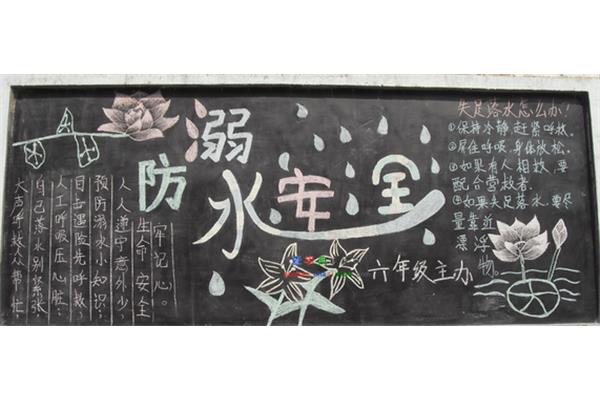 防溺水安全
六年级主办
大声呼救众帮忙,
自己落水别紧张,
人工呼吸压心脏;
目击遇险先呼救,
预防溺水小知识;
人人遵守意外少,
生命安全
牢记心。
失足落水怎么办!
①保持冷静 赶紧呼救.
②屏住呼吸 身体放松.
③如果有人相救 要
配合营救者.
④如果失足落水.要尽
量靠近
漂浮物。